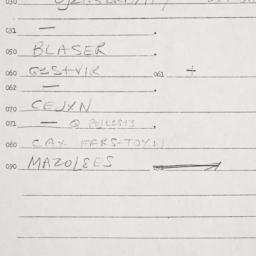 030
031 —
050 BLASER
060 GUSTVIK 061 +
062 —
070 CEJXN
071 —
080 CAX FARSTOXN
090 MAZOLSES